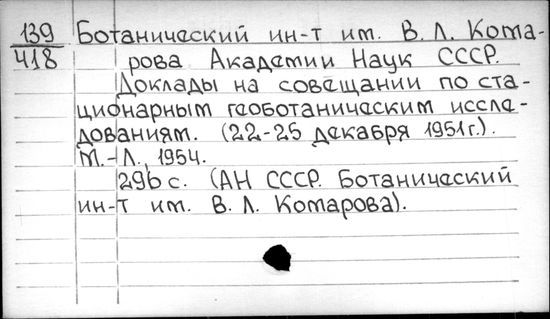 139 Ботанический ин-т им. В. Л. Кома-
418 рова Академии Наук СССР.
Доклады на совещании по ста-
ционарным геоботаническим иссле-
дованиям. (22-25 декабря 1951г.).
М.-Л., 1954.
296 с. (АН СССР. Ботанический
ин-т им. В. Л. Комарова).